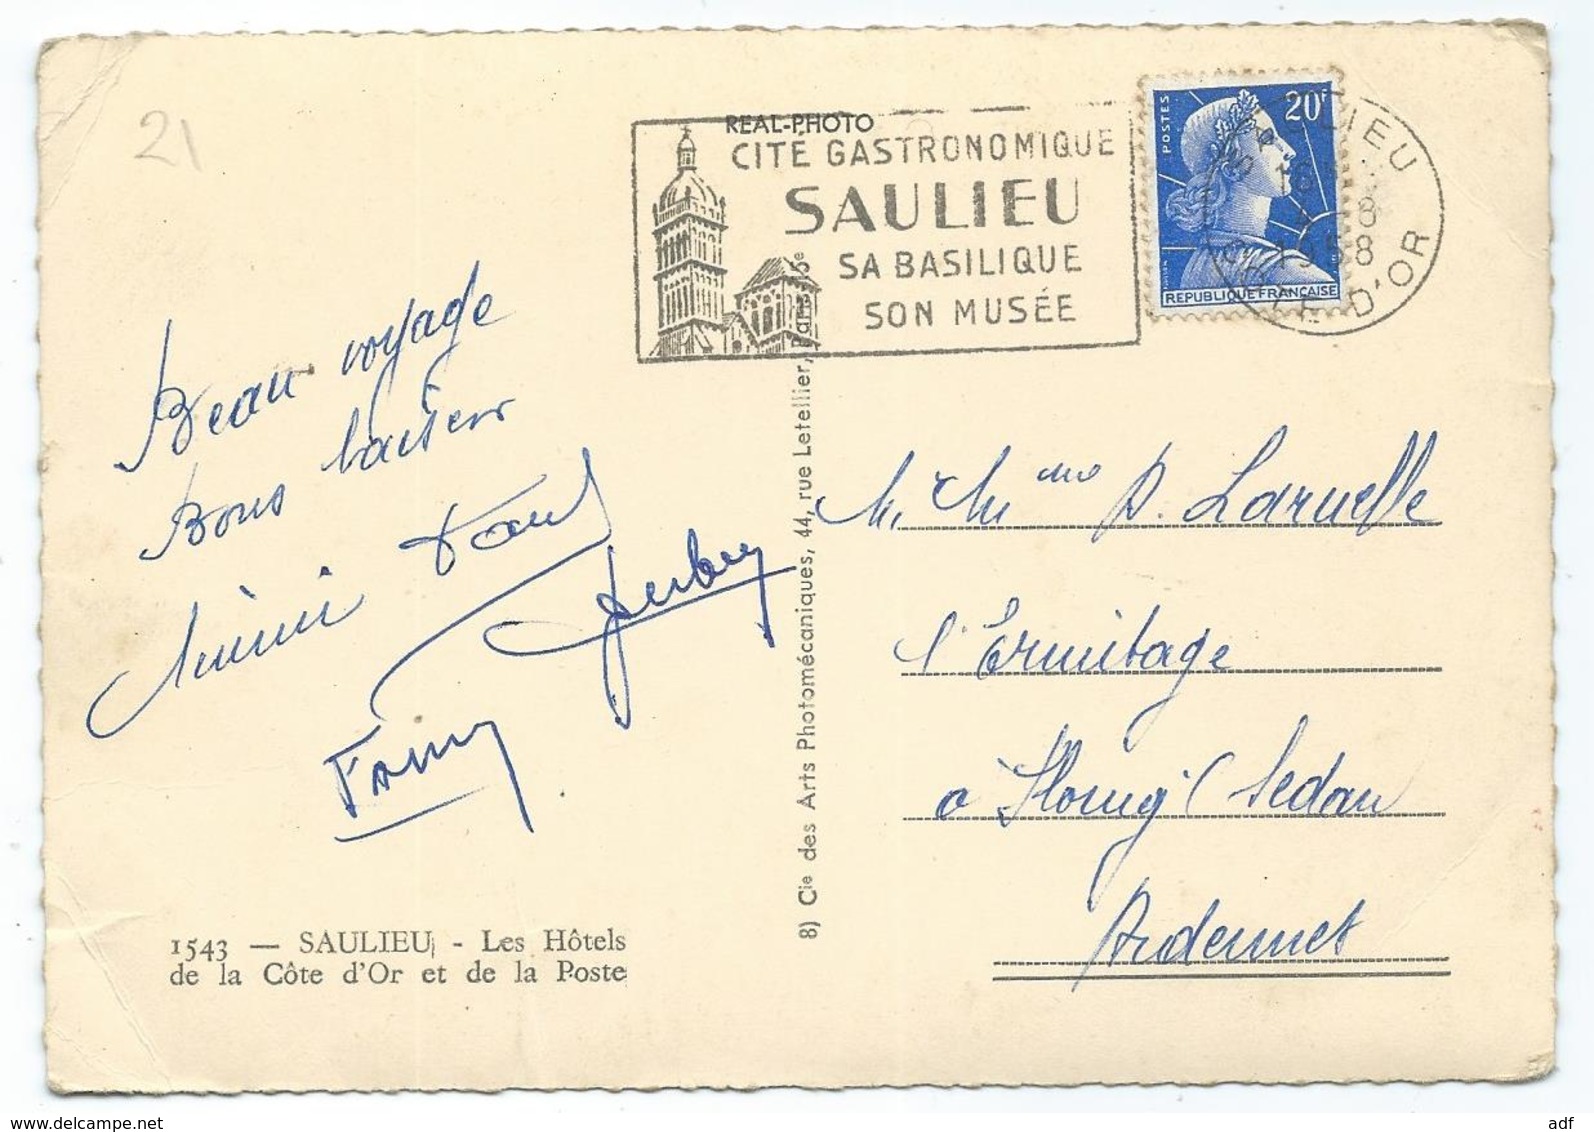 21
REAL-PHOTO
CITÉ GASTRONOMIQUE
SAULIEU
SA BASILIQUE
SON MUSÉE
POSTES
20F
REPUBLIQUE FRANÇAISE
SAULIEU
16H
4-8
1958
CÔTE D'OR
Beau voyage
Bons baisers
Mimi Paul
Fanny
M. Mme P. Laruelle
l'Ermitage
à Floing (Sedan
Ardennes
1543 — SAULIEU - Les Hôtels
de la Côte d'Or et de la Poste
8) Cie des Arts Photomécaniques, 44, rue Letellier, Paris-15e
delcampe.net
adf